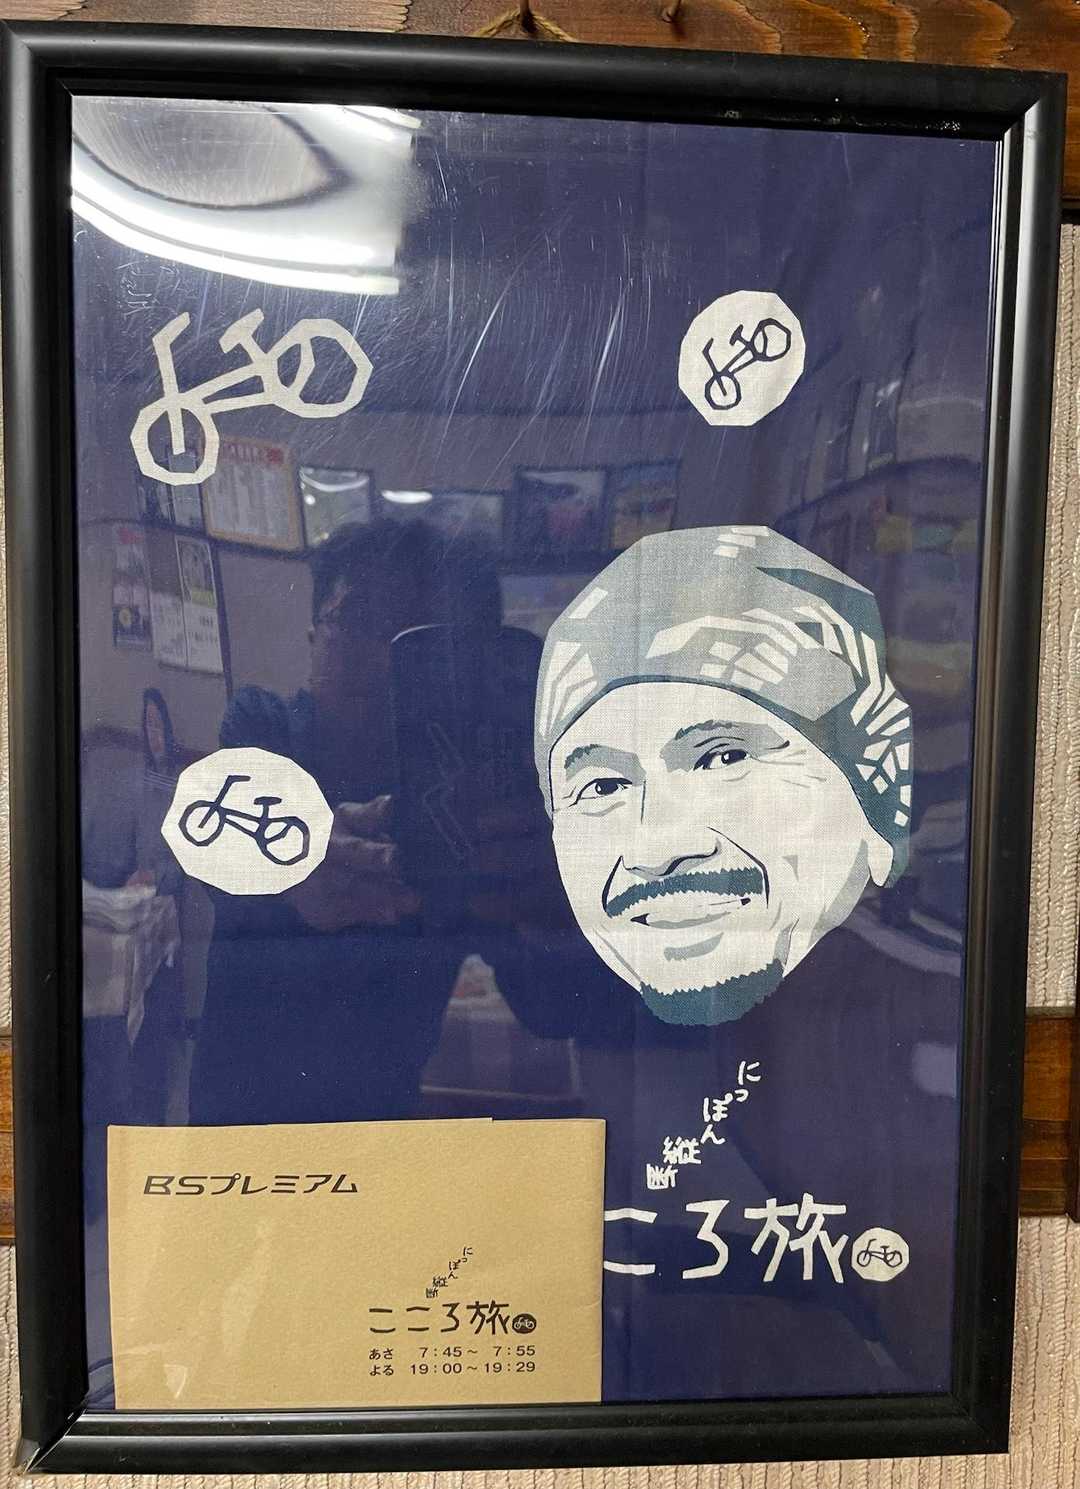 にっ
ぽん
縦
断
ころ旅
BSプレミアム
にっ
ぽん
縦
断
こころ旅
あさ 7:45～ 7:55
よる 19:00～19:29